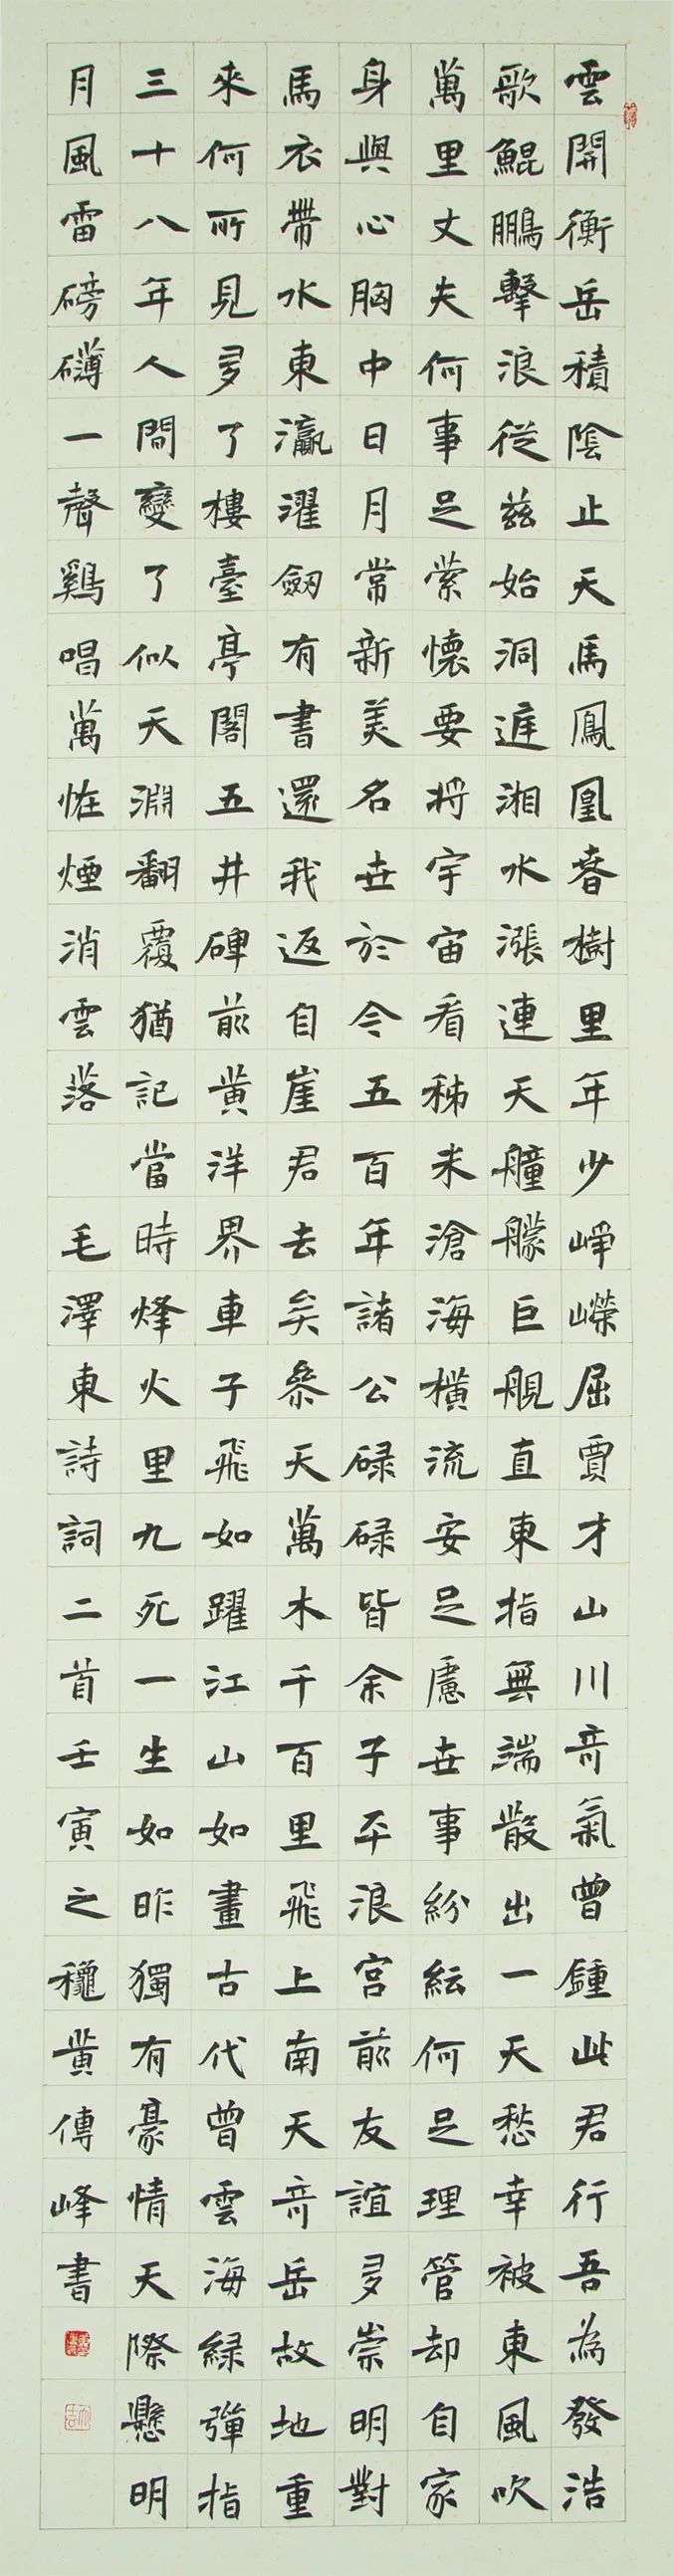 雲開衡岳積陰止天馬鳳凰春樹里年少崢嶸屈賈才山川奇氣曾鍾此君行吾為發浩
歌鯤鵬擊浪從兹始洞庭湘水漲連天艟艨巨舰直東指無端散出一天愁幸被東風吹
萬里丈夫何事足縈懷要將宇宙看稊米滄海橫流安足慮世事紛紜何足理管却自家
身與心胸中日月常新美名世於今五百年諸公碌碌皆余子平浪宮前友誼多崇明對
馬衣帶水東瀛濯劔有書還我返自崖君去矣參天萬木千百里飛上南天奇岳故地重
來何所見多了樓臺亭閣五井碑前黃洋界車子飛如躍江山如畫古代曾雲海綠彈指
三十八年人間變了似天淵翻覆猶記當時烽火里九死一生如昨獨有豪情天際懸明
月風雷磅礴一聲鷄唱萬怪煙消雲落 毛澤東詩詞二首壬寅之龝黃傳峰書